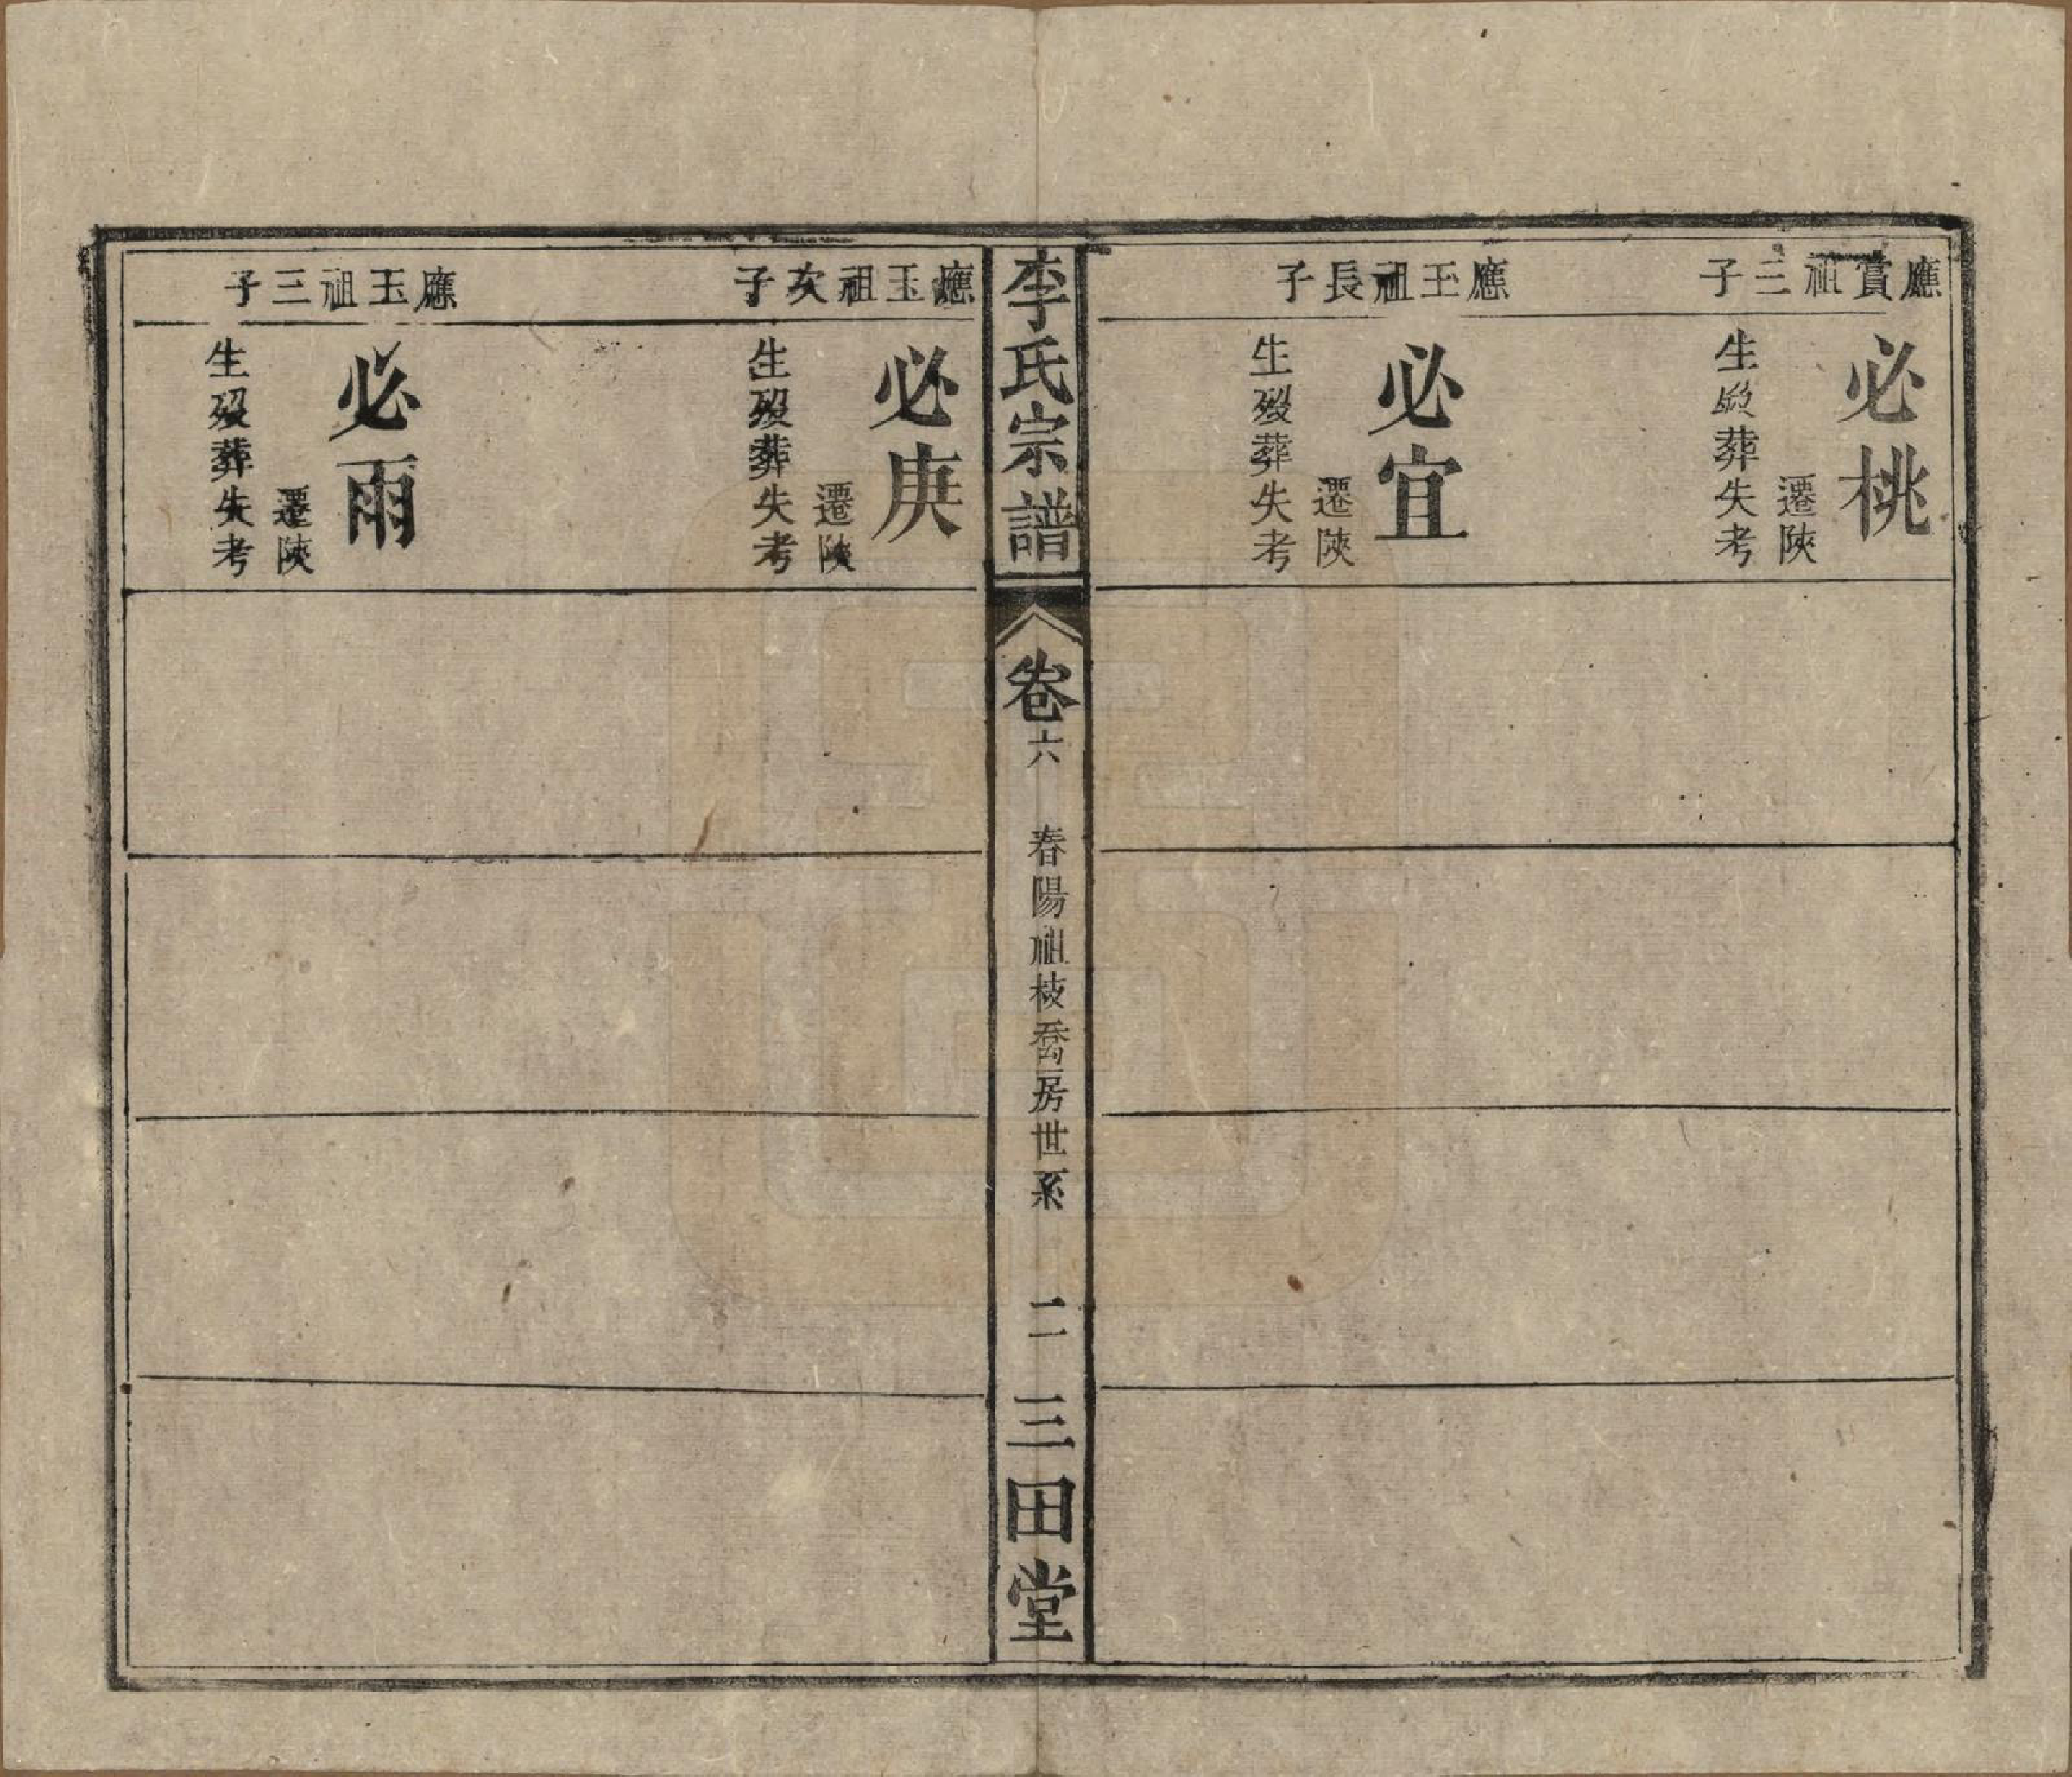 應賞祖三子
必桃
遷陝
生歿葬失考
應玉祖長子
必宜
遷陝
生歿葬失考
李氏宗譜
卷六
春陽祖枝喬房世系
二
三田堂
應玉祖次子
必庚
遷陝
生歿葬失考
應玉祖三子
必雨
遷陝
生歿葬失考